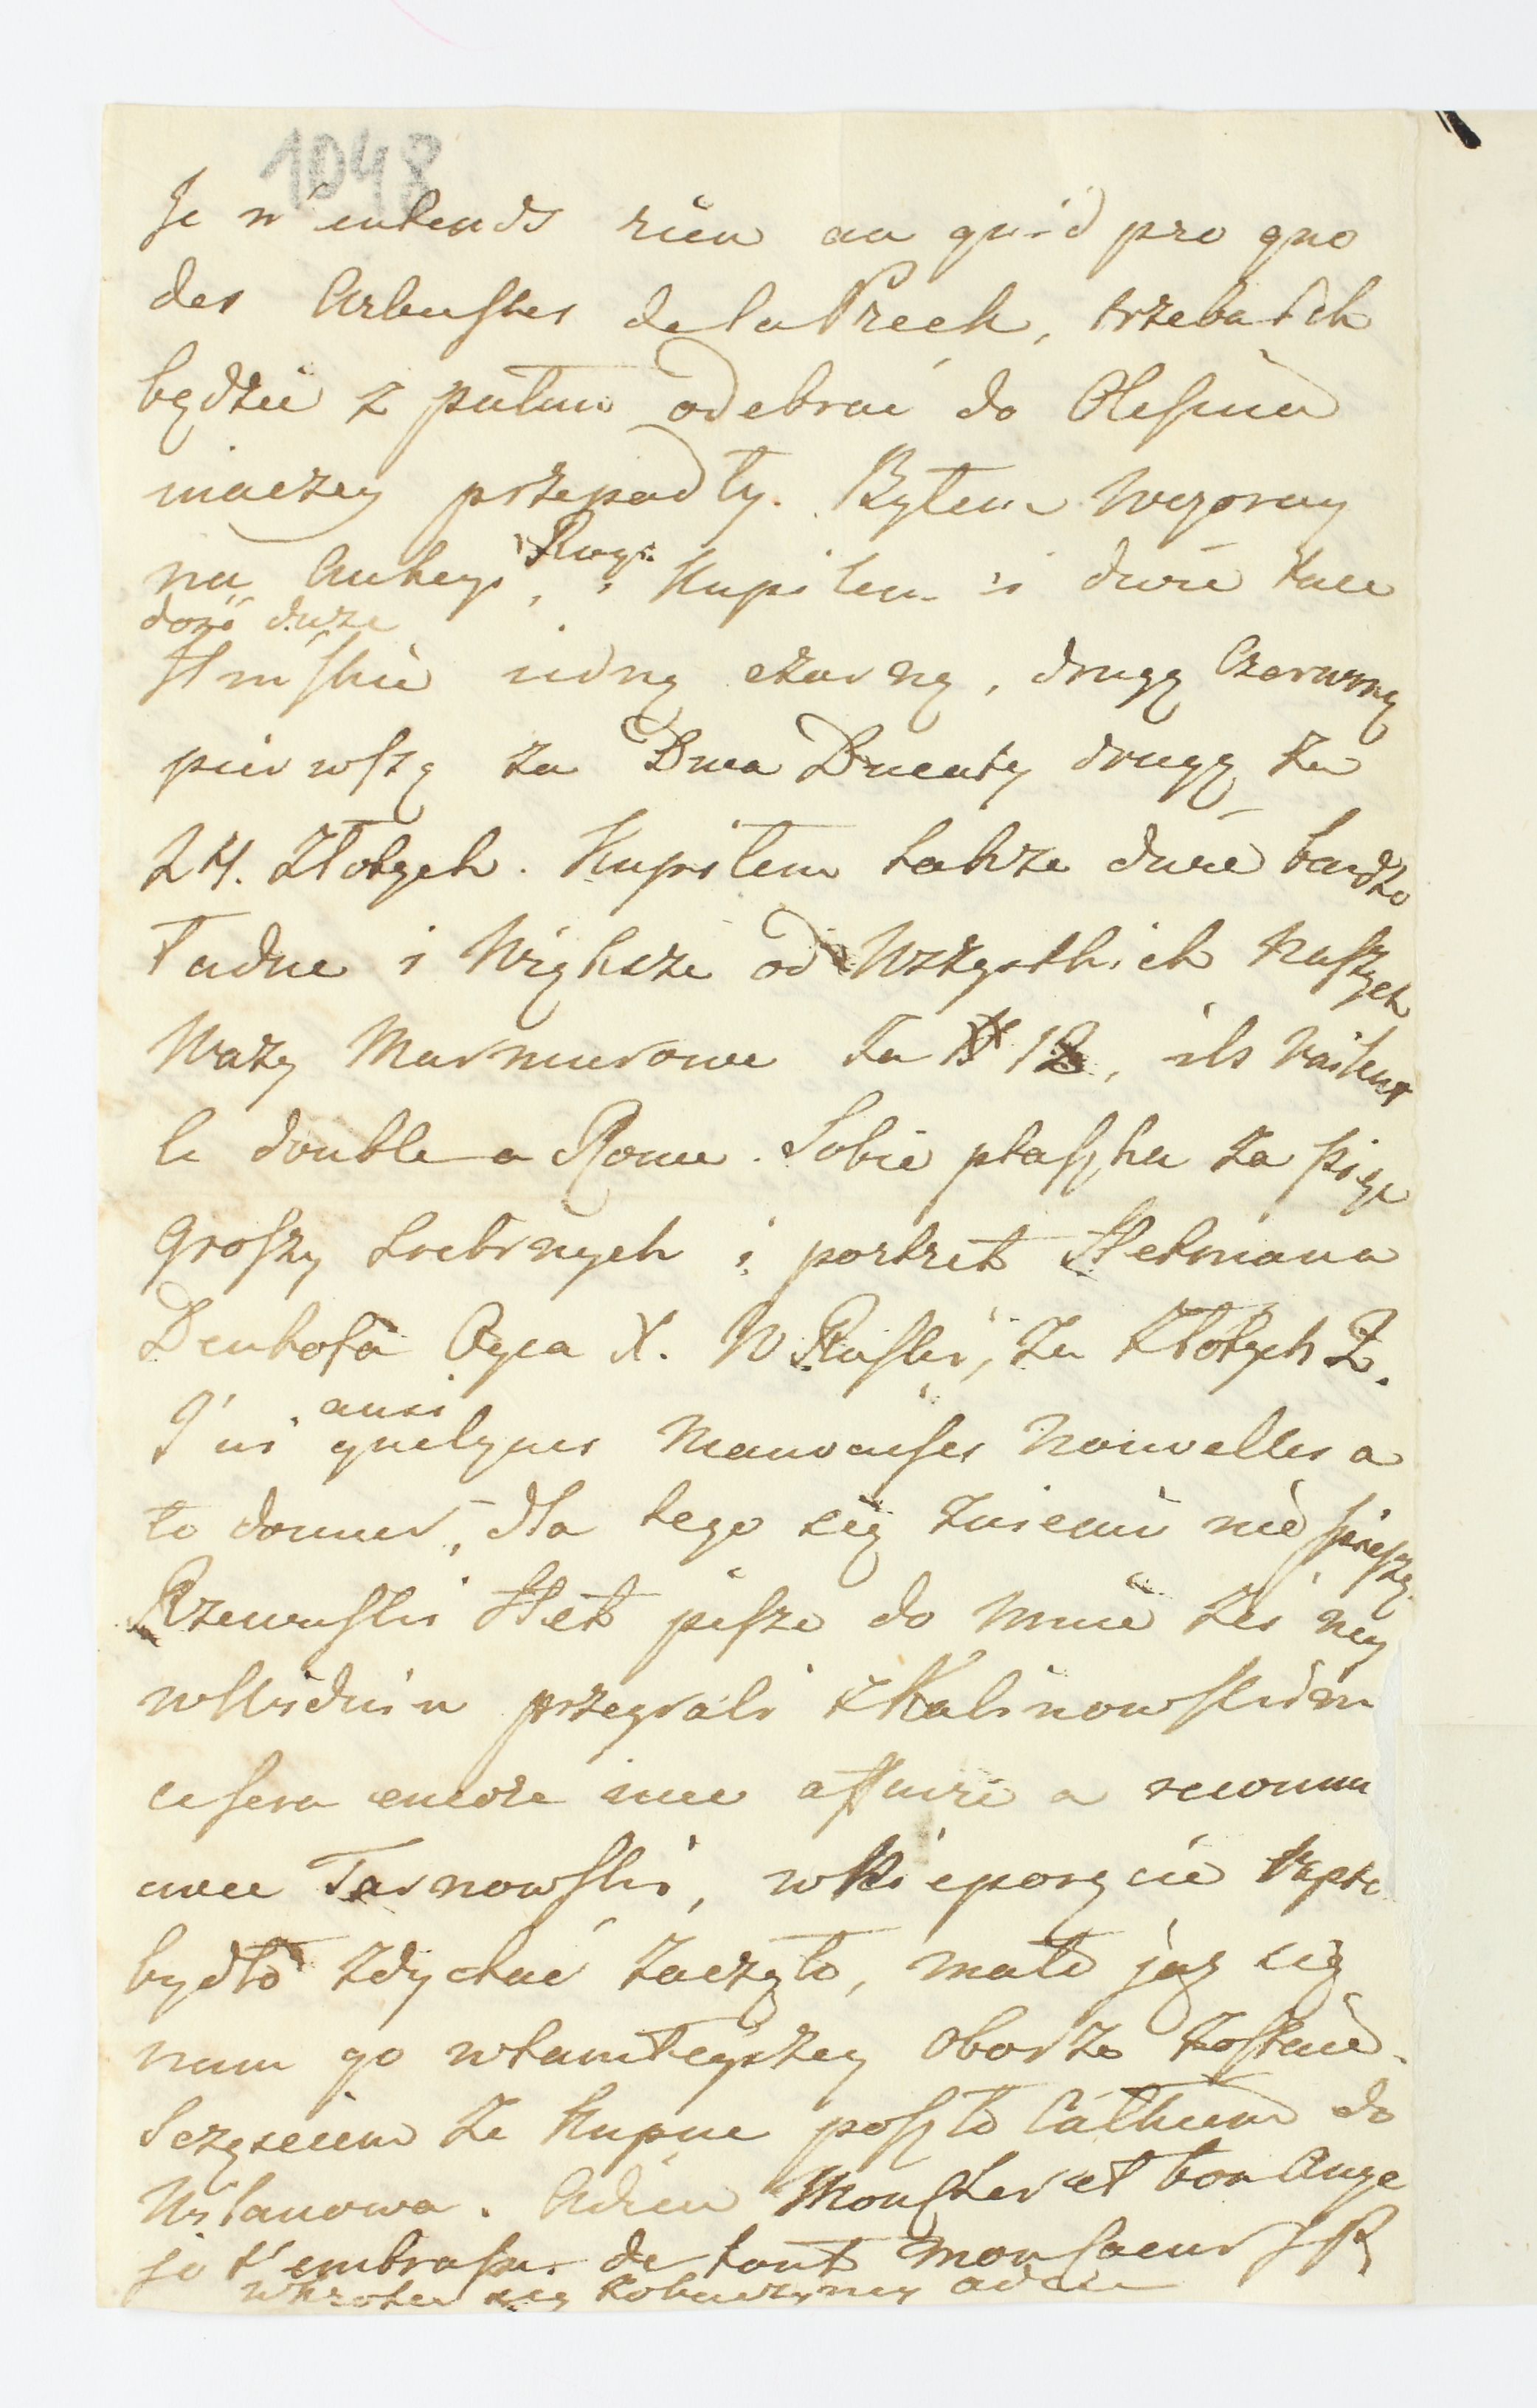 1048
Je n'entends rien au quid pro quo
des Arbustes de la Preek, trzeba ich
będzie z putum odebrać do Olesina
inaczey przepadły. Byłem wczoray
na Aukcyi Ruyi, Kupiłem i dwie tace
dosć duże
Chinskie iedną czarną, drugą Czerwoną
pierwszą za Dwa Ducaty drugą za
24. Złotych. Kupiłem także dwie bardzo
ładne i Większe od Wszystkich naszych
Wazy Marmurowe za # 18, ils vailent
le double a Rome. Sobie ptaszka za pięc
Groszy srebrnych i portret Hetmana
Denhofa Oyca X. W Ruskiey, za Złotych 2.
J'ai aussi quelques Mauvaises Nouvelles a
te donner, dla tego się zniemi nie spieszę
Rzewuski Het pisze do mnie żeś my
w Widniu przegrali z Kalinowskiem
ce sera encore une affaire a
avec Tarnowski, w Niéporęcie
bydło zdychać zaczęło, mało już się
nam go w tamteyszey oborze zostaie.
Sczęsciem że Kupne poszło całkiem do
Wilanowa. Adieu Mon cher et bon Ange
je t'embrasse de tout mon coeur SP
Wkrotce się zobaczymy adieu